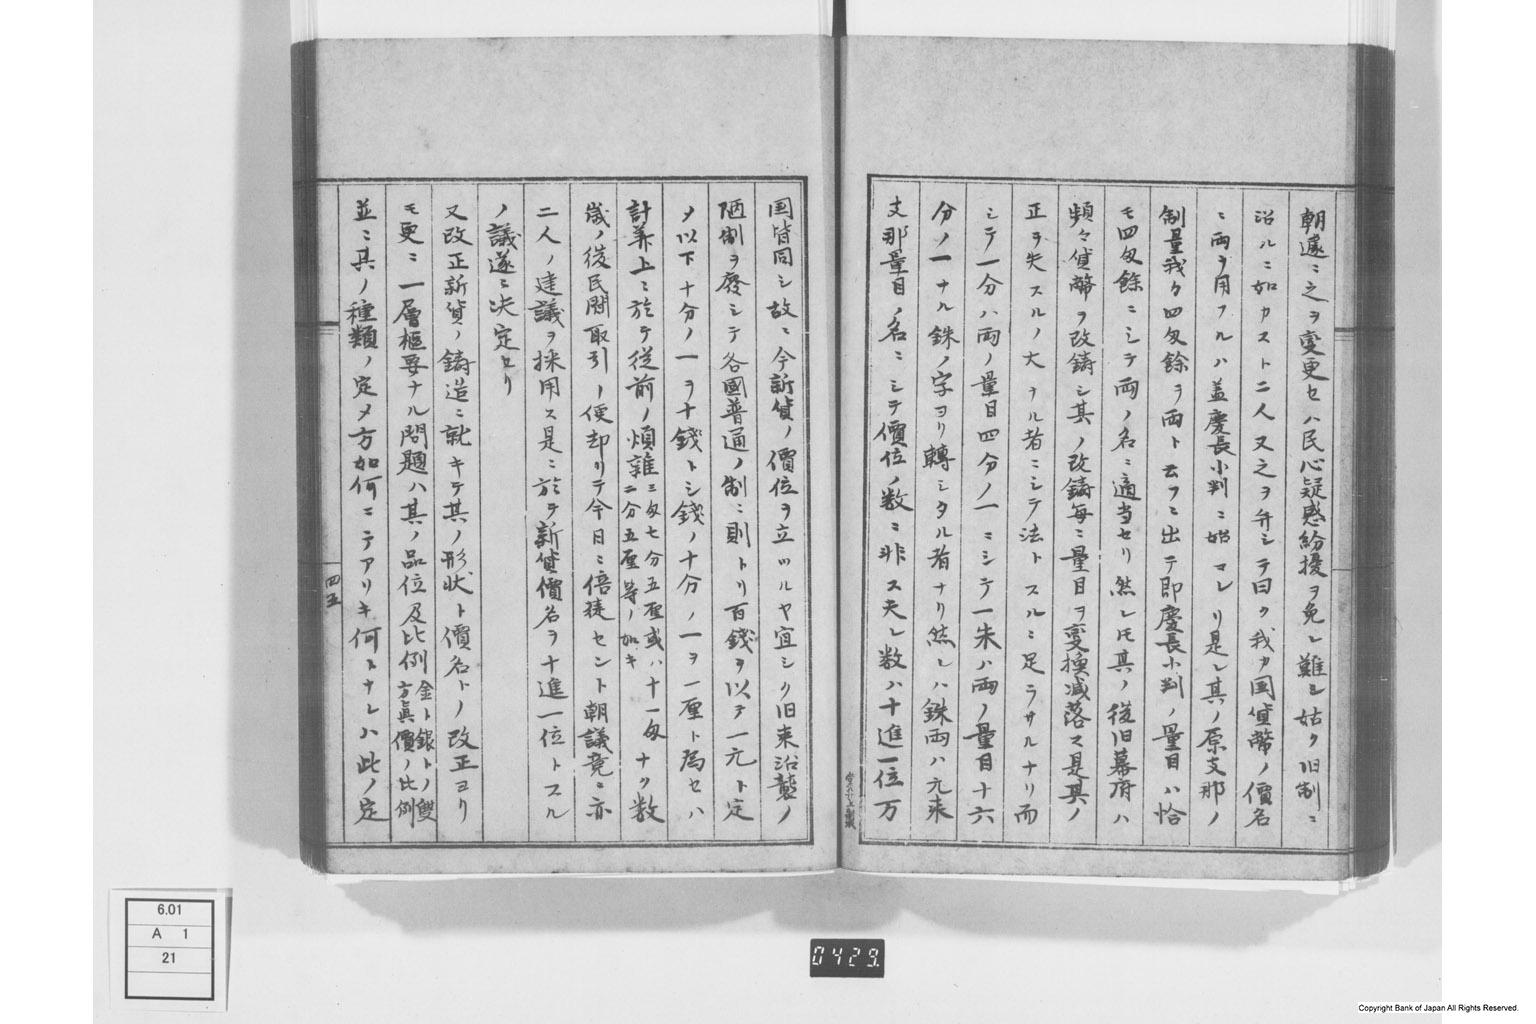 朝遽ニ之ヲ変更セハ民心疑惑紛擾ヲ免レ難シ姑ク旧制ニ
沿ルニ如カスト二人又之ヲ弁シテ曰ク我カ国貨幣ノ價名
ニ両ヲ用フルハ盖慶長小判ニ始マレリ是レ其ノ原支那ノ
制量我ク四匁餘ヲ両ト云フニ出テ即慶長小判ノ量目ハ恰
モ四匁餘ニシテ両ノ名ニ適当セリ然レ𪜈其ノ後旧幕府ハ
頻々貨幣ヲ改鋳シ其ノ改鋳毎ニ量目ヲ変換減落ス是其ノ
正ヲ失スルノ大ナル者ニシテ法トスルニ足ラサルナリ而
シテ一分ハ両ノ量目四分ノ一ニシテ一朱ハ両ノ量目十六
分ノ一ナル銖ノ字ヨリ轉シタル者ナリ然レハ銖両ハ元来
支那量目ノ名ニシテ價位ノ数ニ非ス夫レ数ハ十進一位万
国皆同シ故ニ今新貨ノ價位ヲ立ツルヤ宜シク旧来沿襲ノ
陋制ヲ廢シテ各國普通ノ制ニ則トリ百錢ヲ以テ一元ト定
メ以下十分ノ一ヲ十錢トシ錢ノ十分ノ一ヲ一厘ト為セハ
計筭上ニ於テ従前ノ煩雜三匁七分五厘或ハ十一匁二分五厘等ノ如キナク数
歳ノ後民間取引ノ便却リテ今日ニ倍蓰セント朝議竟ニ亦
二人ノ建議ヲ採用ス是ニ於テ新貨價名ヲ十進一位トスル
ノ議遂ニ决定セリ
又改正新貨ノ鋳造ニ就キテ其ノ形状ト價名トノ改正ヨリ
モ更ニ一層枢要ナル問題ハ其ノ品位及比例金ト銀トノ雙方眞價ノ比例
並ニ其ノ種類ノ定メ方如何ニテアリキ何トナレハ此ノ定
四五
0429
6.01
A 1
21
Copyright Bank of Japan All Rights Reserved.